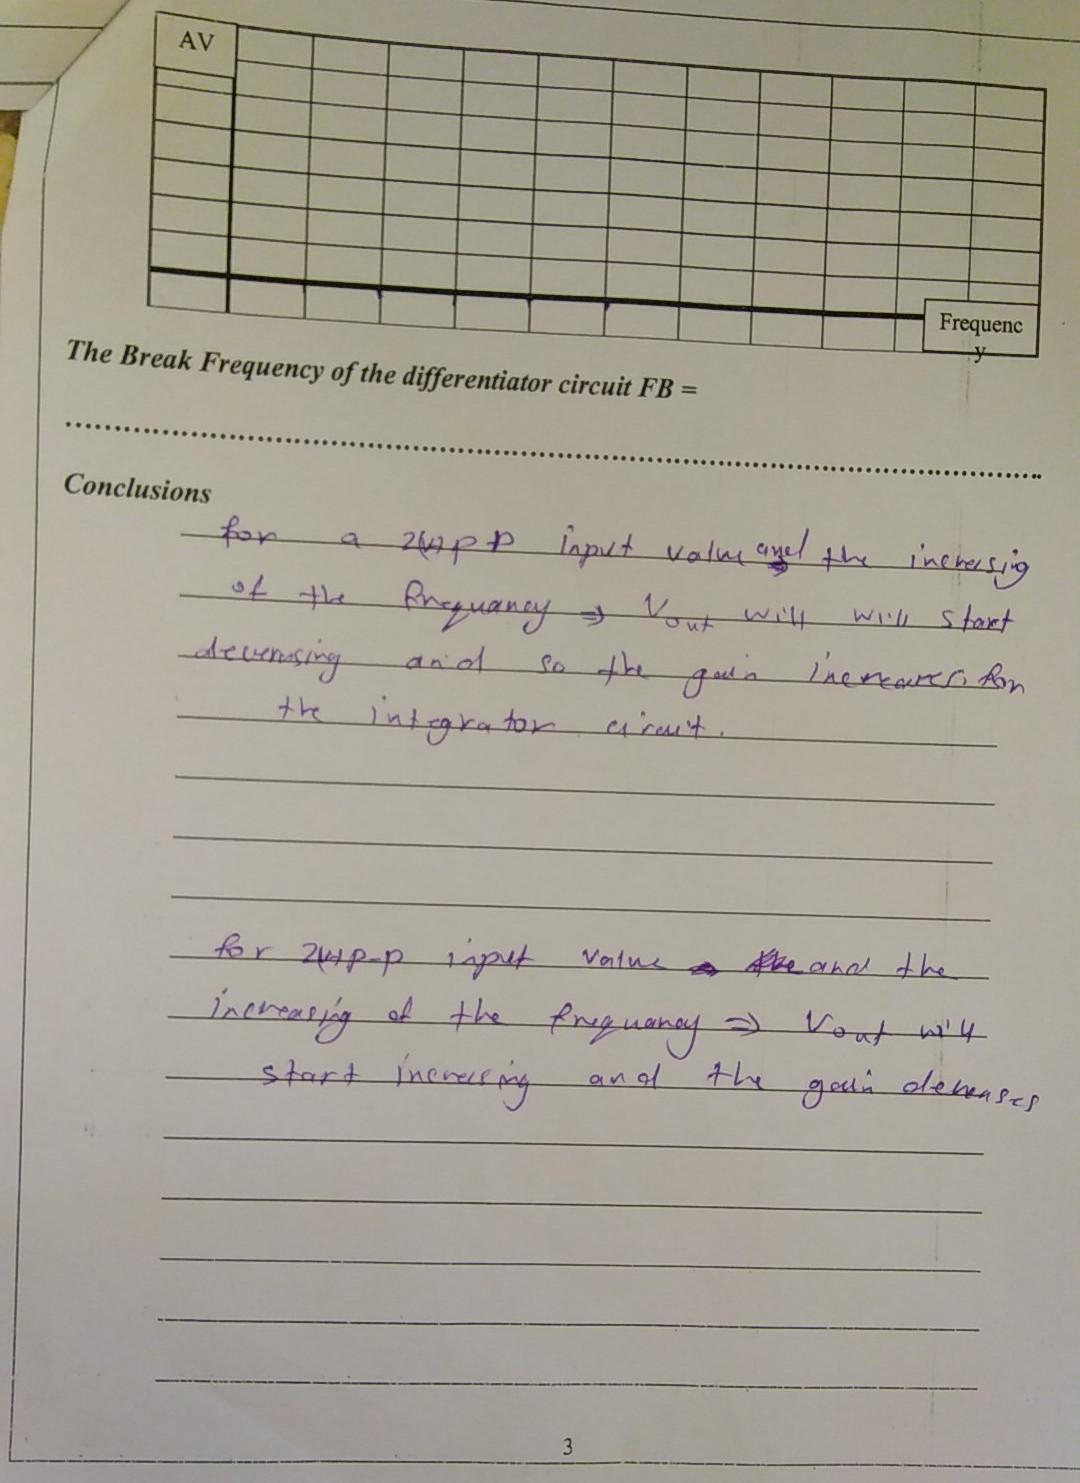 AV
Frequenc
y
The Break Frequency of the differentiator circuit FB =
Conclusions
for a 2(v) p p input value and the increasing
of the frequancy ⇒ Vout will will start
decreasing and so the gain increases for
the integrator circuit.
for 2(v) p-p input value and the
increasing of the frequancy ⇒ Vout will
start increasing and the gain decreases
3